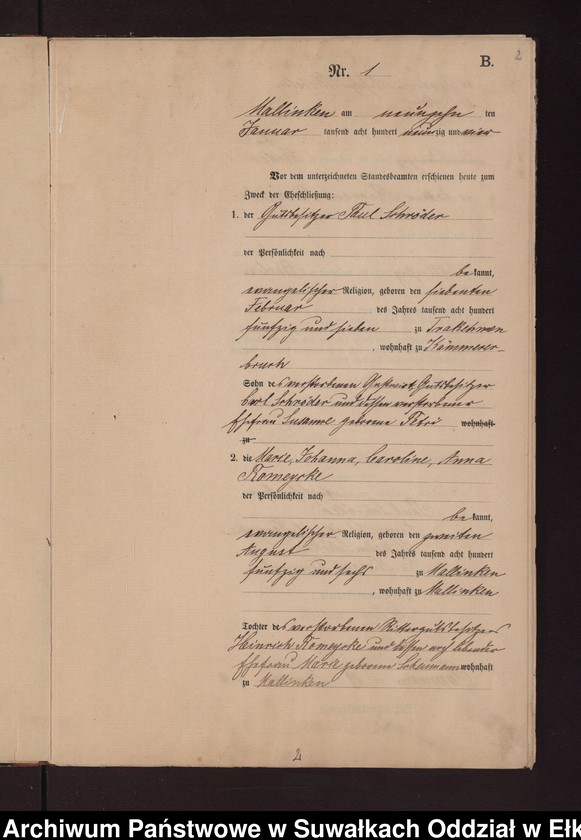 2
B.
Nr. 1
Mallinken am neunzehn ten
Januar tausend acht hundert neunzig und vier
Vor dem unterzeichneten Standesbeamten erschienen heute zum
Zweck der Eheschließung:
1. der Gutsbesitzer Paul Schröder
der Persönlichkeit nach
be kannt,
evangelischer Religion, geboren den siebenten
Februar des Jahres tausend acht hundert
fünfzig und sieben zu Trakehnen
, wohnhaft zu Kämmerer-
bruch
Sohn des verstorbenen Gutsbesitzer
Carl Schröder und dessen verstorbener
Ehefrau Susanne geborene Petri wohnhaft
zu
2. die Marie, Johanna, Caroline, Anna
Romeycke
der Persönlichkeit nach
be kannt,
evangelischer Religion, geboren den zweiten
August des Jahres tausend acht hundert
fünfzig und sechs zu Mallinken
, wohnhaft zu Mallinken
Tochter des verstorbenen Rittergutsbesitzers
Heinrich Romeycke und dessen noch lebender
Ehefrau Marie geborene wohnhaft
zu Mallinken
2
Archiwum Państwowe w Suwałkach Oddział w Ełk